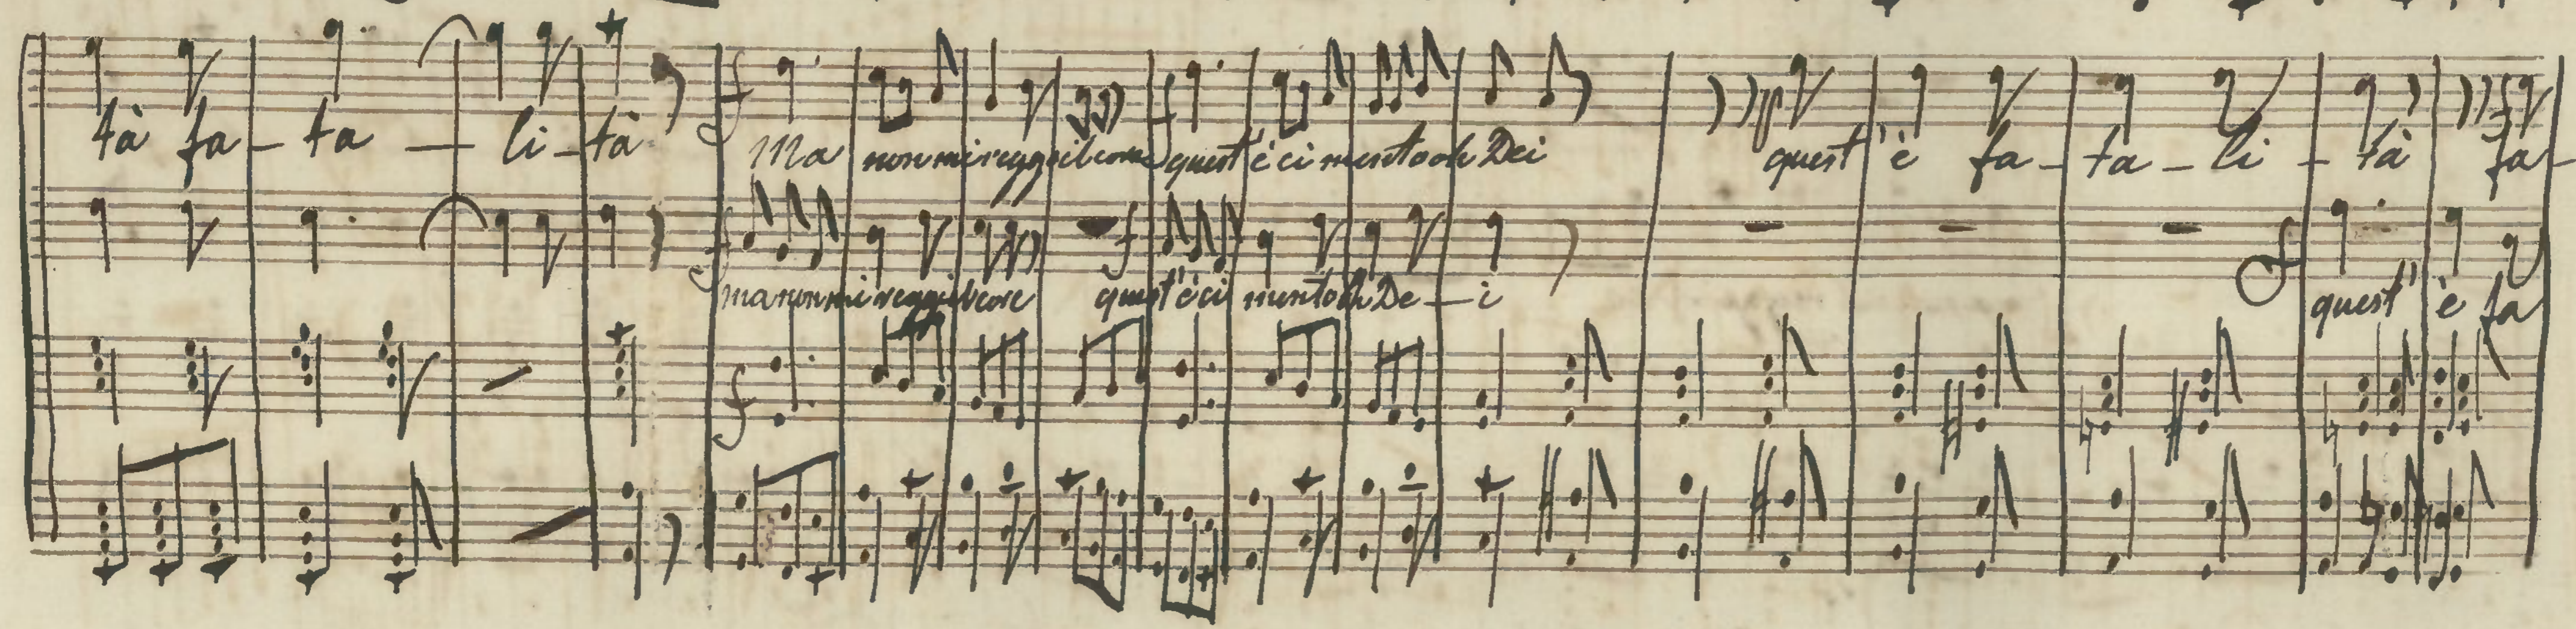 tà fa - ta - li - tà ma non mi regge il core quest' è cimento oh Dei quest' è fa - ta - li - tà fa -
ma non mi regge il core quest' è cimento oh De - i quest' è fa